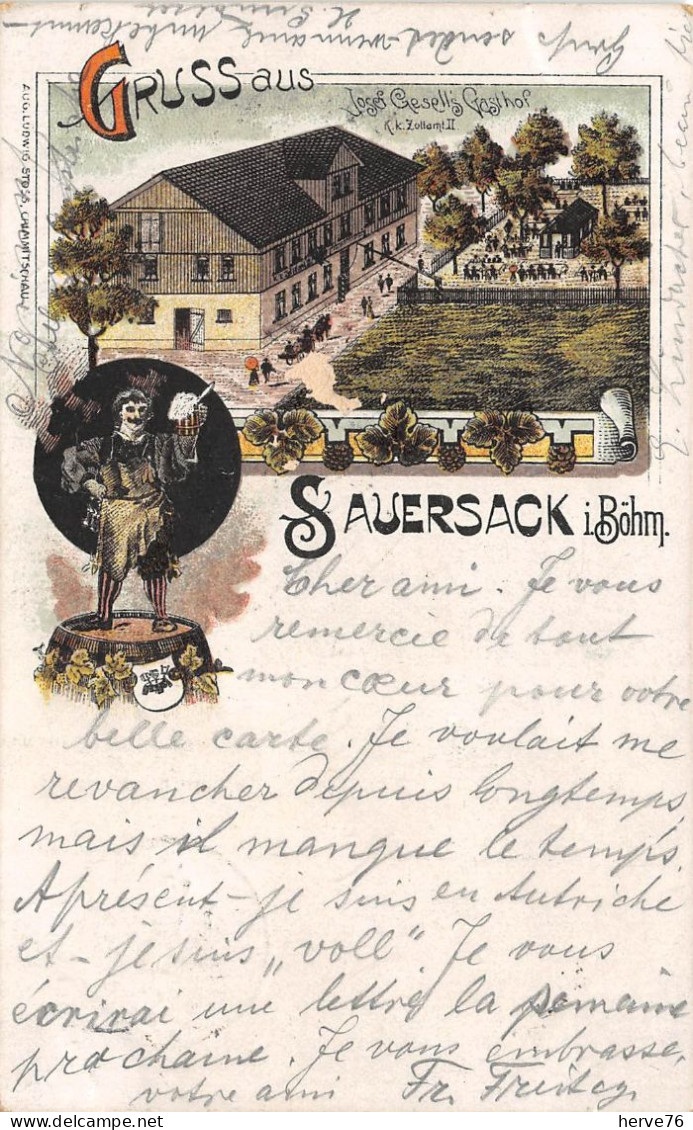 Gruss aus
Josef Gesell's Gasthof
K.k. Zollamt II
AUG. LUDWIG
Sauersack i. Böhm.
Cher ami. Je vous
remercie de tout
mon cœur pour votre
belle carte. Je voulait me
revancher depuis longtemps,
mais il manque le temps.
Aprésent je suis en Autriche
et je suis „voll" Je vous
écrirai une lettre la semaine
prochaine. Je vous embrasse,
votre ami Fr. Freitag
herve76